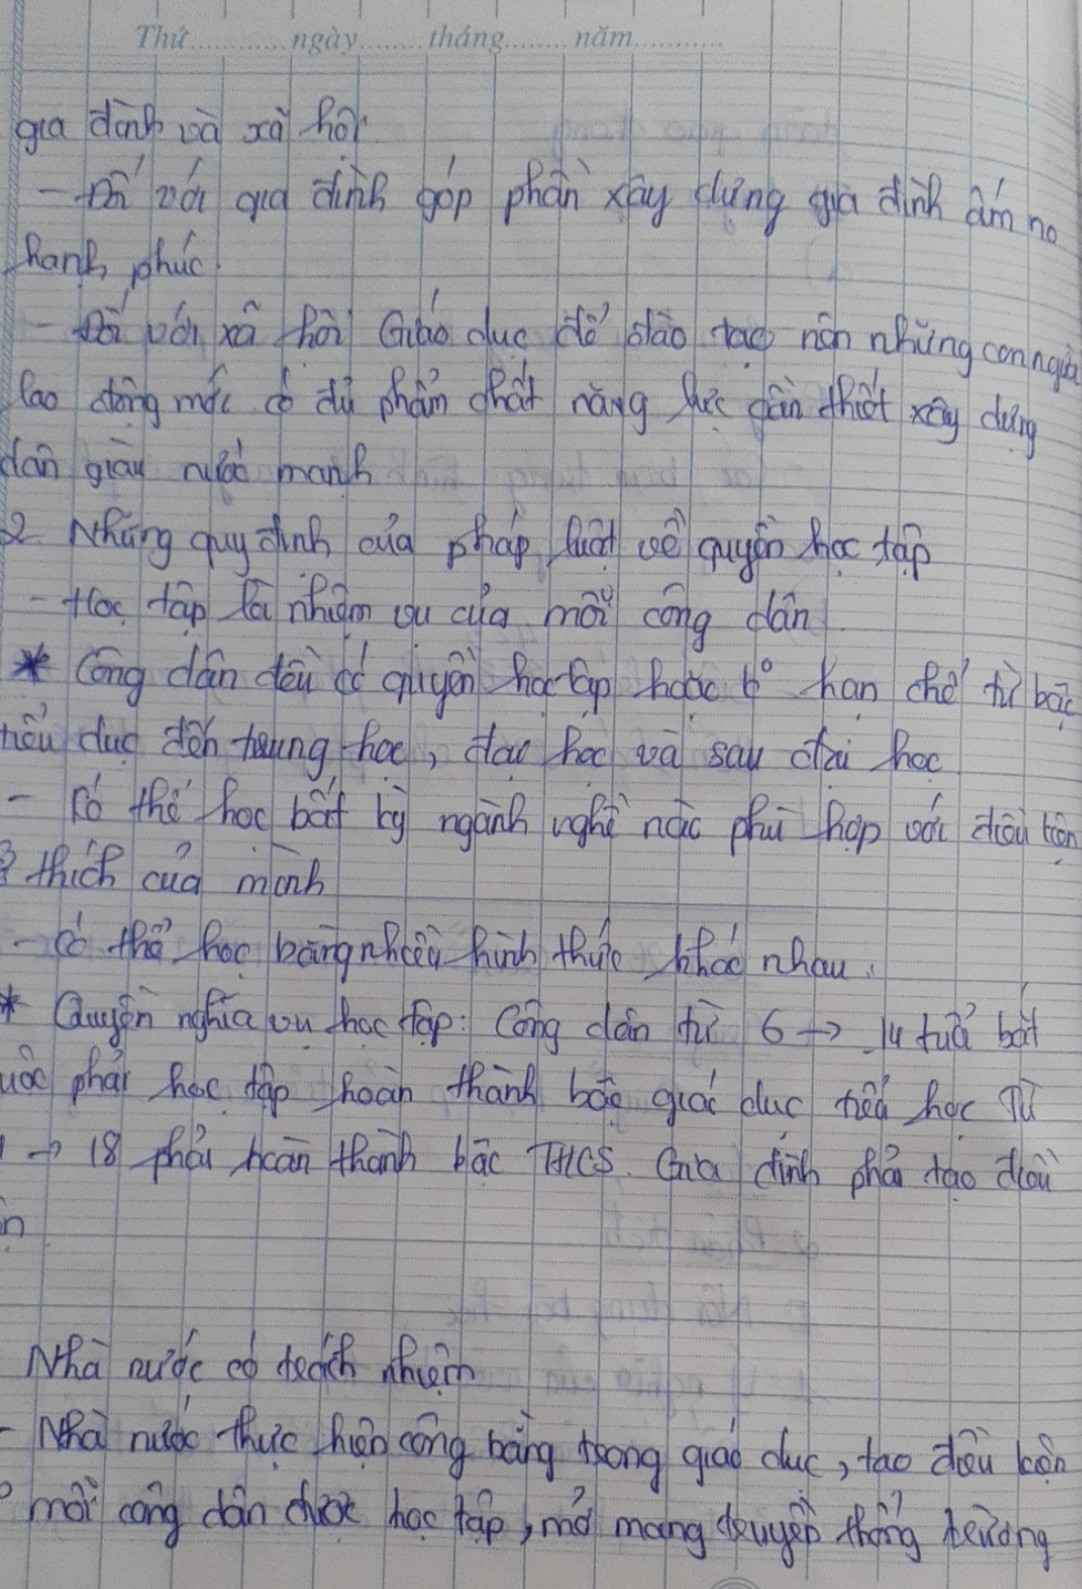 Thứ............ngày........tháng........năm...........
gia đình và xã hội
- Đối với gia đình góp phần xây dựng gia đình ấm no
hạnh phúc.
- Đối với xã hội Giáo dục để đào tạo nên những con người
lao động mới có đủ phẩm chất năng lực cần thiết xây dựng
dân giàu nước mạnh
2 Những quy định của pháp luật về quyền học tập
- Học tập là nhiệm vụ của mỗi công dân
* Công dân đều có quyền học tập hoặc k° hạn chế từ bậc
tiểu dục đến trung học, đại học và sau đại học
- Có thể học bất kỳ ngành nghề nào phù hợp với điều kiện
thích của mình
- Có thể học bằng nhiều hình thức khác nhau.
* Quyền nghĩa vụ học tập: Công dân từ 6 → 14 tuổi bắt
phải học tập hoàn thành bậc giáo dục tiểu học Từ
→ 18 phải hoàn thành bậc THCS. Gia đình phải tạo điều
Nhà nước có trách nhiệm
- Nhà nước thực hiện công bằng trong giáo dục, tạo điều kiện
mỗi công dân được học tập, mở mang truyền thống trường